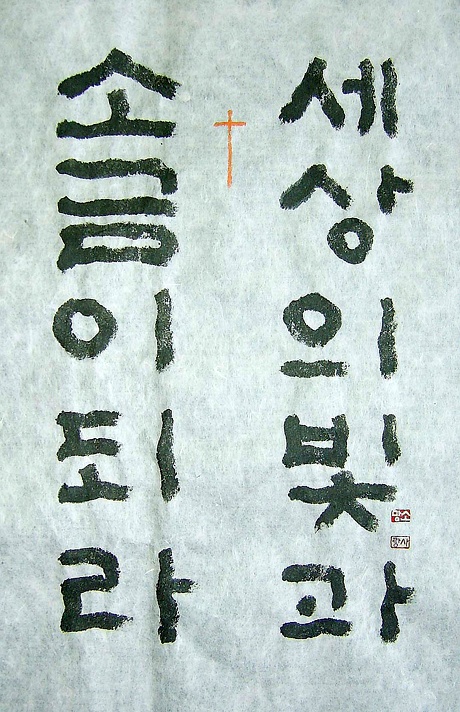 세상의빛과
소금이되라